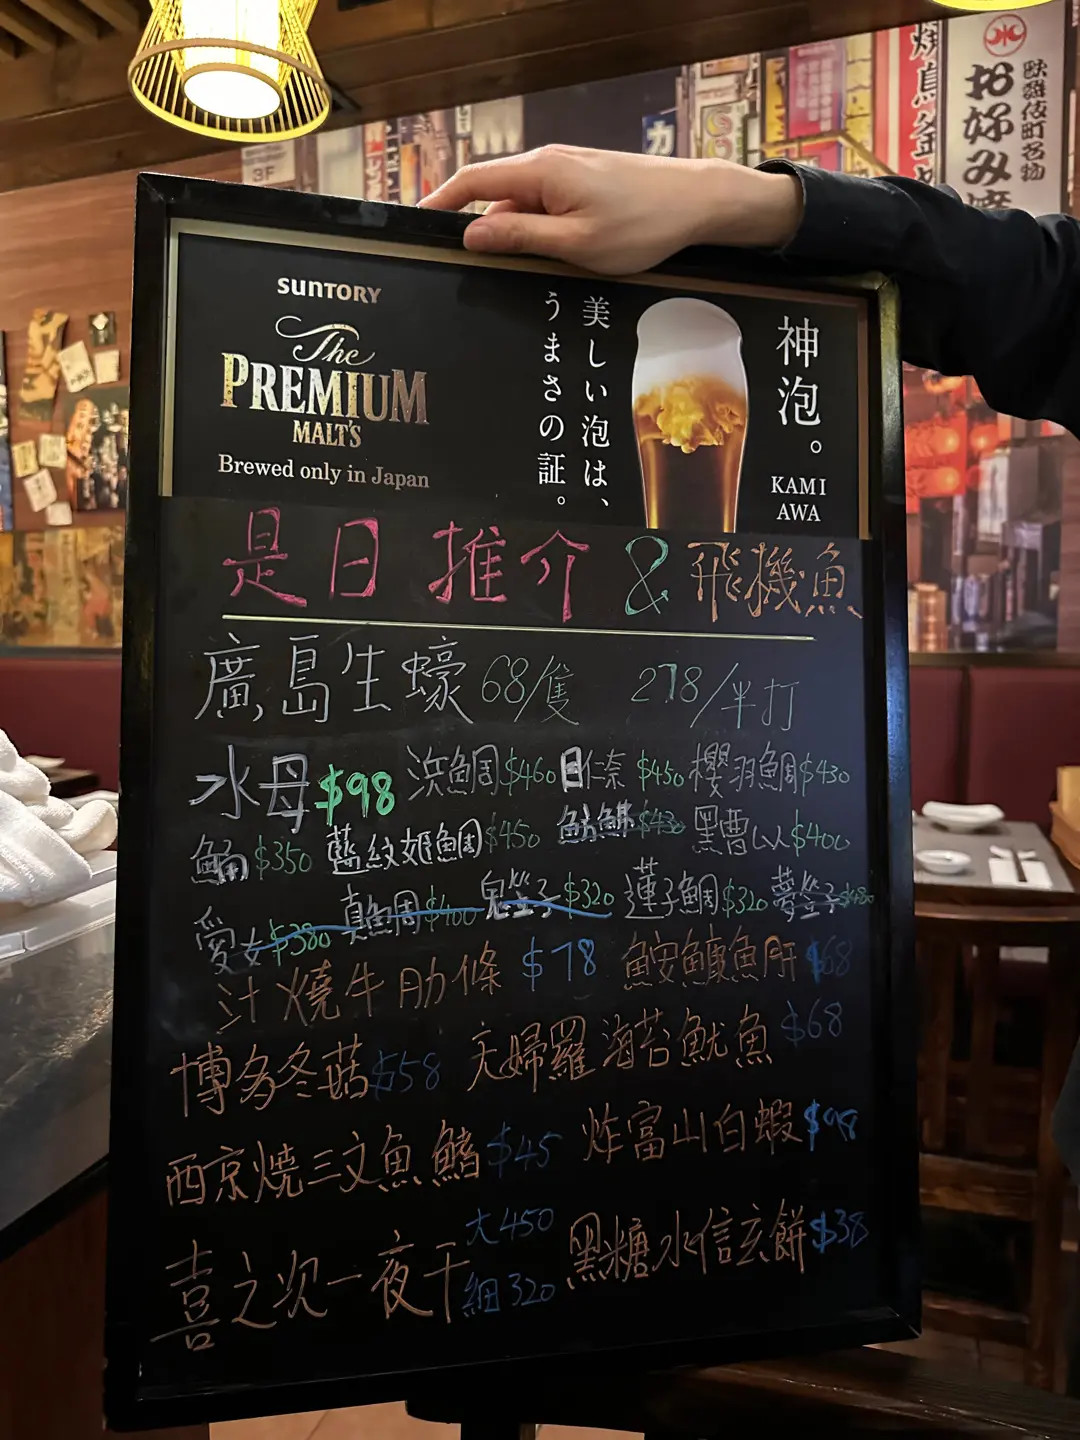 SUNTORY
The
PREMIUM
MALT'S
Brewed only in Japan
美しい泡は、
うまさの証。
神泡。
KAMI
AWA
是日推介 & 飛機魚
廣島生蠔 68/隻 278/半打
水母 $98 浜鯛 $460 目仁奈 $450 櫻羽鯛 $430
$350 藍紋姬鯛 $450 $430 黑曹以 $400
愛女 $380 真魚周 $400 鬼坐子 $320 蓮子鯛 $320 夢坐子 $480
汁燒牛肋條 $78 鮟鱇魚肝 $68
博多冬菇 $58 夫婦羅海苔魷魚 $68
西京燒三文魚鰭 $45 炸富山白蝦 $98
喜之次一夜干 大450 細320 黑糖水信玄餅 $38
歌舞伎町名物
お好み焼
3F